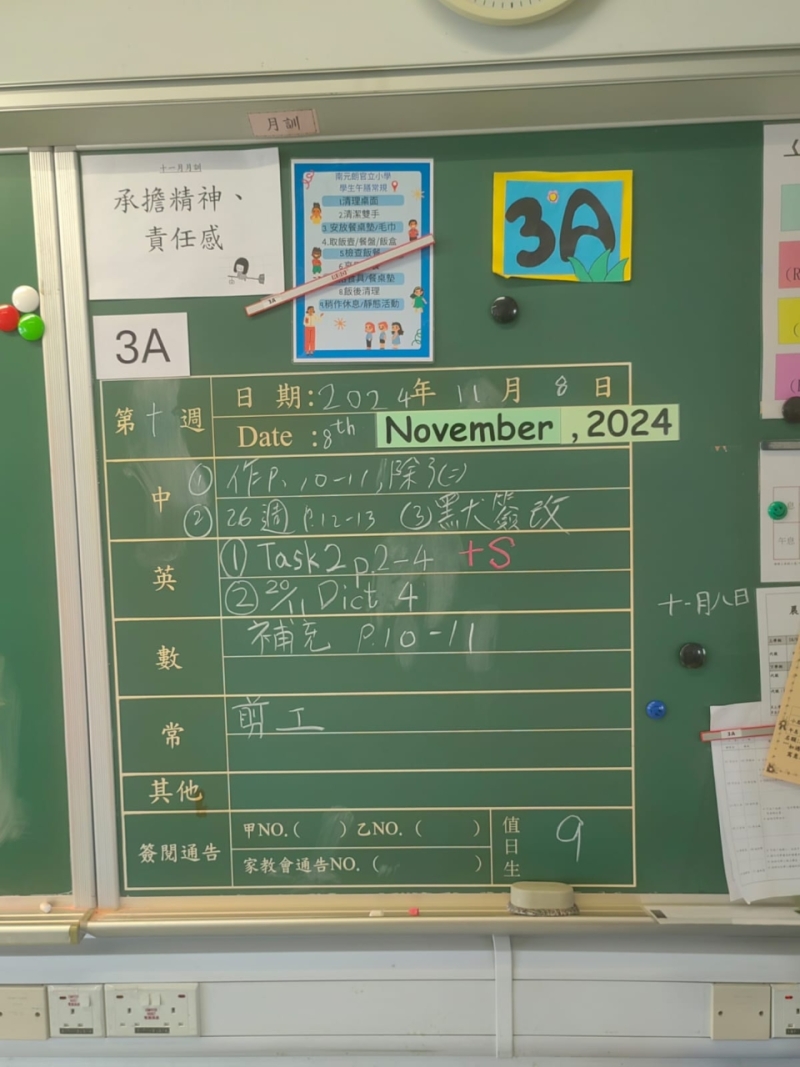 月訓
十一月月訓
承擔精神、
責任感
南元朗官立小學
學生午膳常規
1.清理桌面
2.清潔雙手
3.安放餐桌墊/毛巾
4.取飯壺/餐盤/飯盒
5.檢查飯餐
餐具/餐桌墊
8.飯後清理
9.稍作休息/靜態活動
3A
3A
第十週
日期:2024年11月8日
Date:8th November, 2024
中
① 作P.10-11,除3(二)
② 26週 P.12-13 (3)默簽改
英
① Task2 p.2-4 +S
② 20/11 Dict 4
數
補充 P.10-11
常
剪工
其他
簽閱通告
甲NO.( ) 乙NO.( )
家教會通告NO.( )
值日生
9
十一月八日
3A